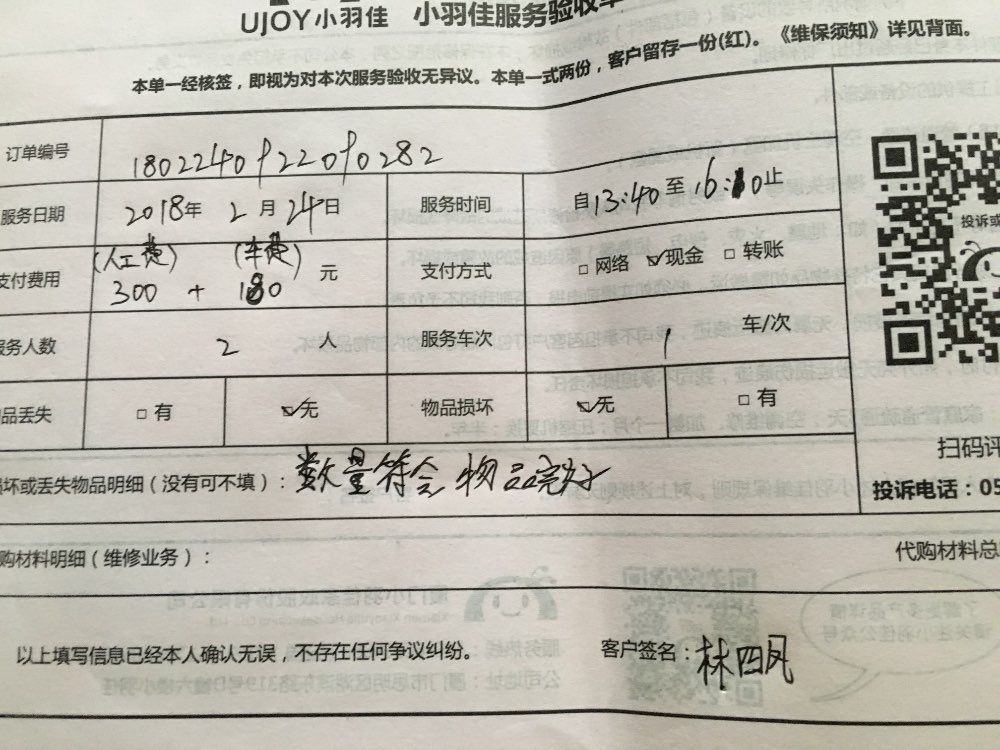 UJOY小羽佳 小羽佳服务验收单
本单一经核签，即视为对本次服务验收无异议。本单一式两份，客户留存一份(红)。《维保须知》详见背面。
订单编号
服务日期 2018年 2月 24日 服务时间 自13:40至16:10止
支付费用 (人工费) (车费)
300 + 180 元 支付方式 □网络 ☑现金 □转账
服务人数 2 人 服务车次 1 车/次
品丢失 □有 ☑无 物品损坏 ☑无 □有
损坏或丢失物品明细（没有可不填）：数量符合 物品完好
购材料明细（维修业务）： 代购材料总
以上填写信息已经本人确认无误，不存在任何争议纠纷。 客户签名：林四凤
投诉或
扫码评
投诉电话：05